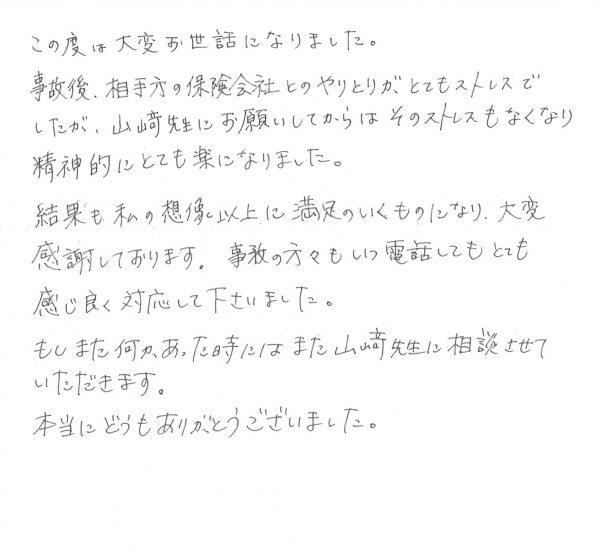 この度は大変お世話になりました。
事故後、相手方の保険会社とのやりとりが、とてもストレスで
したが、山﨑先生にお願いしてからはそのストレスもなくなり
精神的にとても楽になりました。
結果も私の想像以上に満足のいくものになり、大変
感謝しております。事務の方々もいつ電話してもとても
感じ良く対応して下さいました。
もしまた何かあった時にはまた山﨑先生に相談させて
いただきます。
本当にどうもありがとうございました。